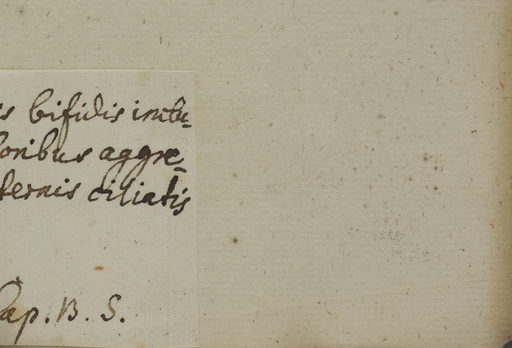 is bifidis imbu-
loribus aggre-
ternis ciliatis
Cap. B. S.